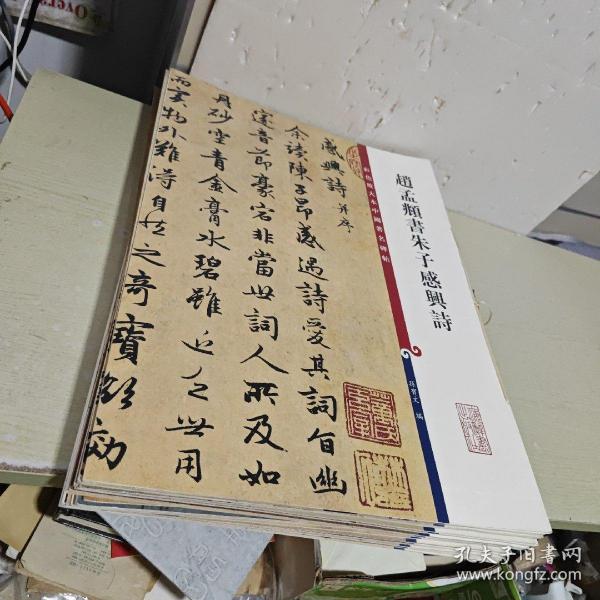 趙孟頫書朱子感興詩
彩色放大本中國著名碑帖
孫寶文 編
感興詩 并序
余讀陳子昂感遇詩愛其詞旨幽
邃音節豪宕非當世詞人所及如
丹砂空青金膏水碧雖近乏世用
而實物外難得自然之奇寶欲効
Over
孔夫子旧书网
www.kongfz.com